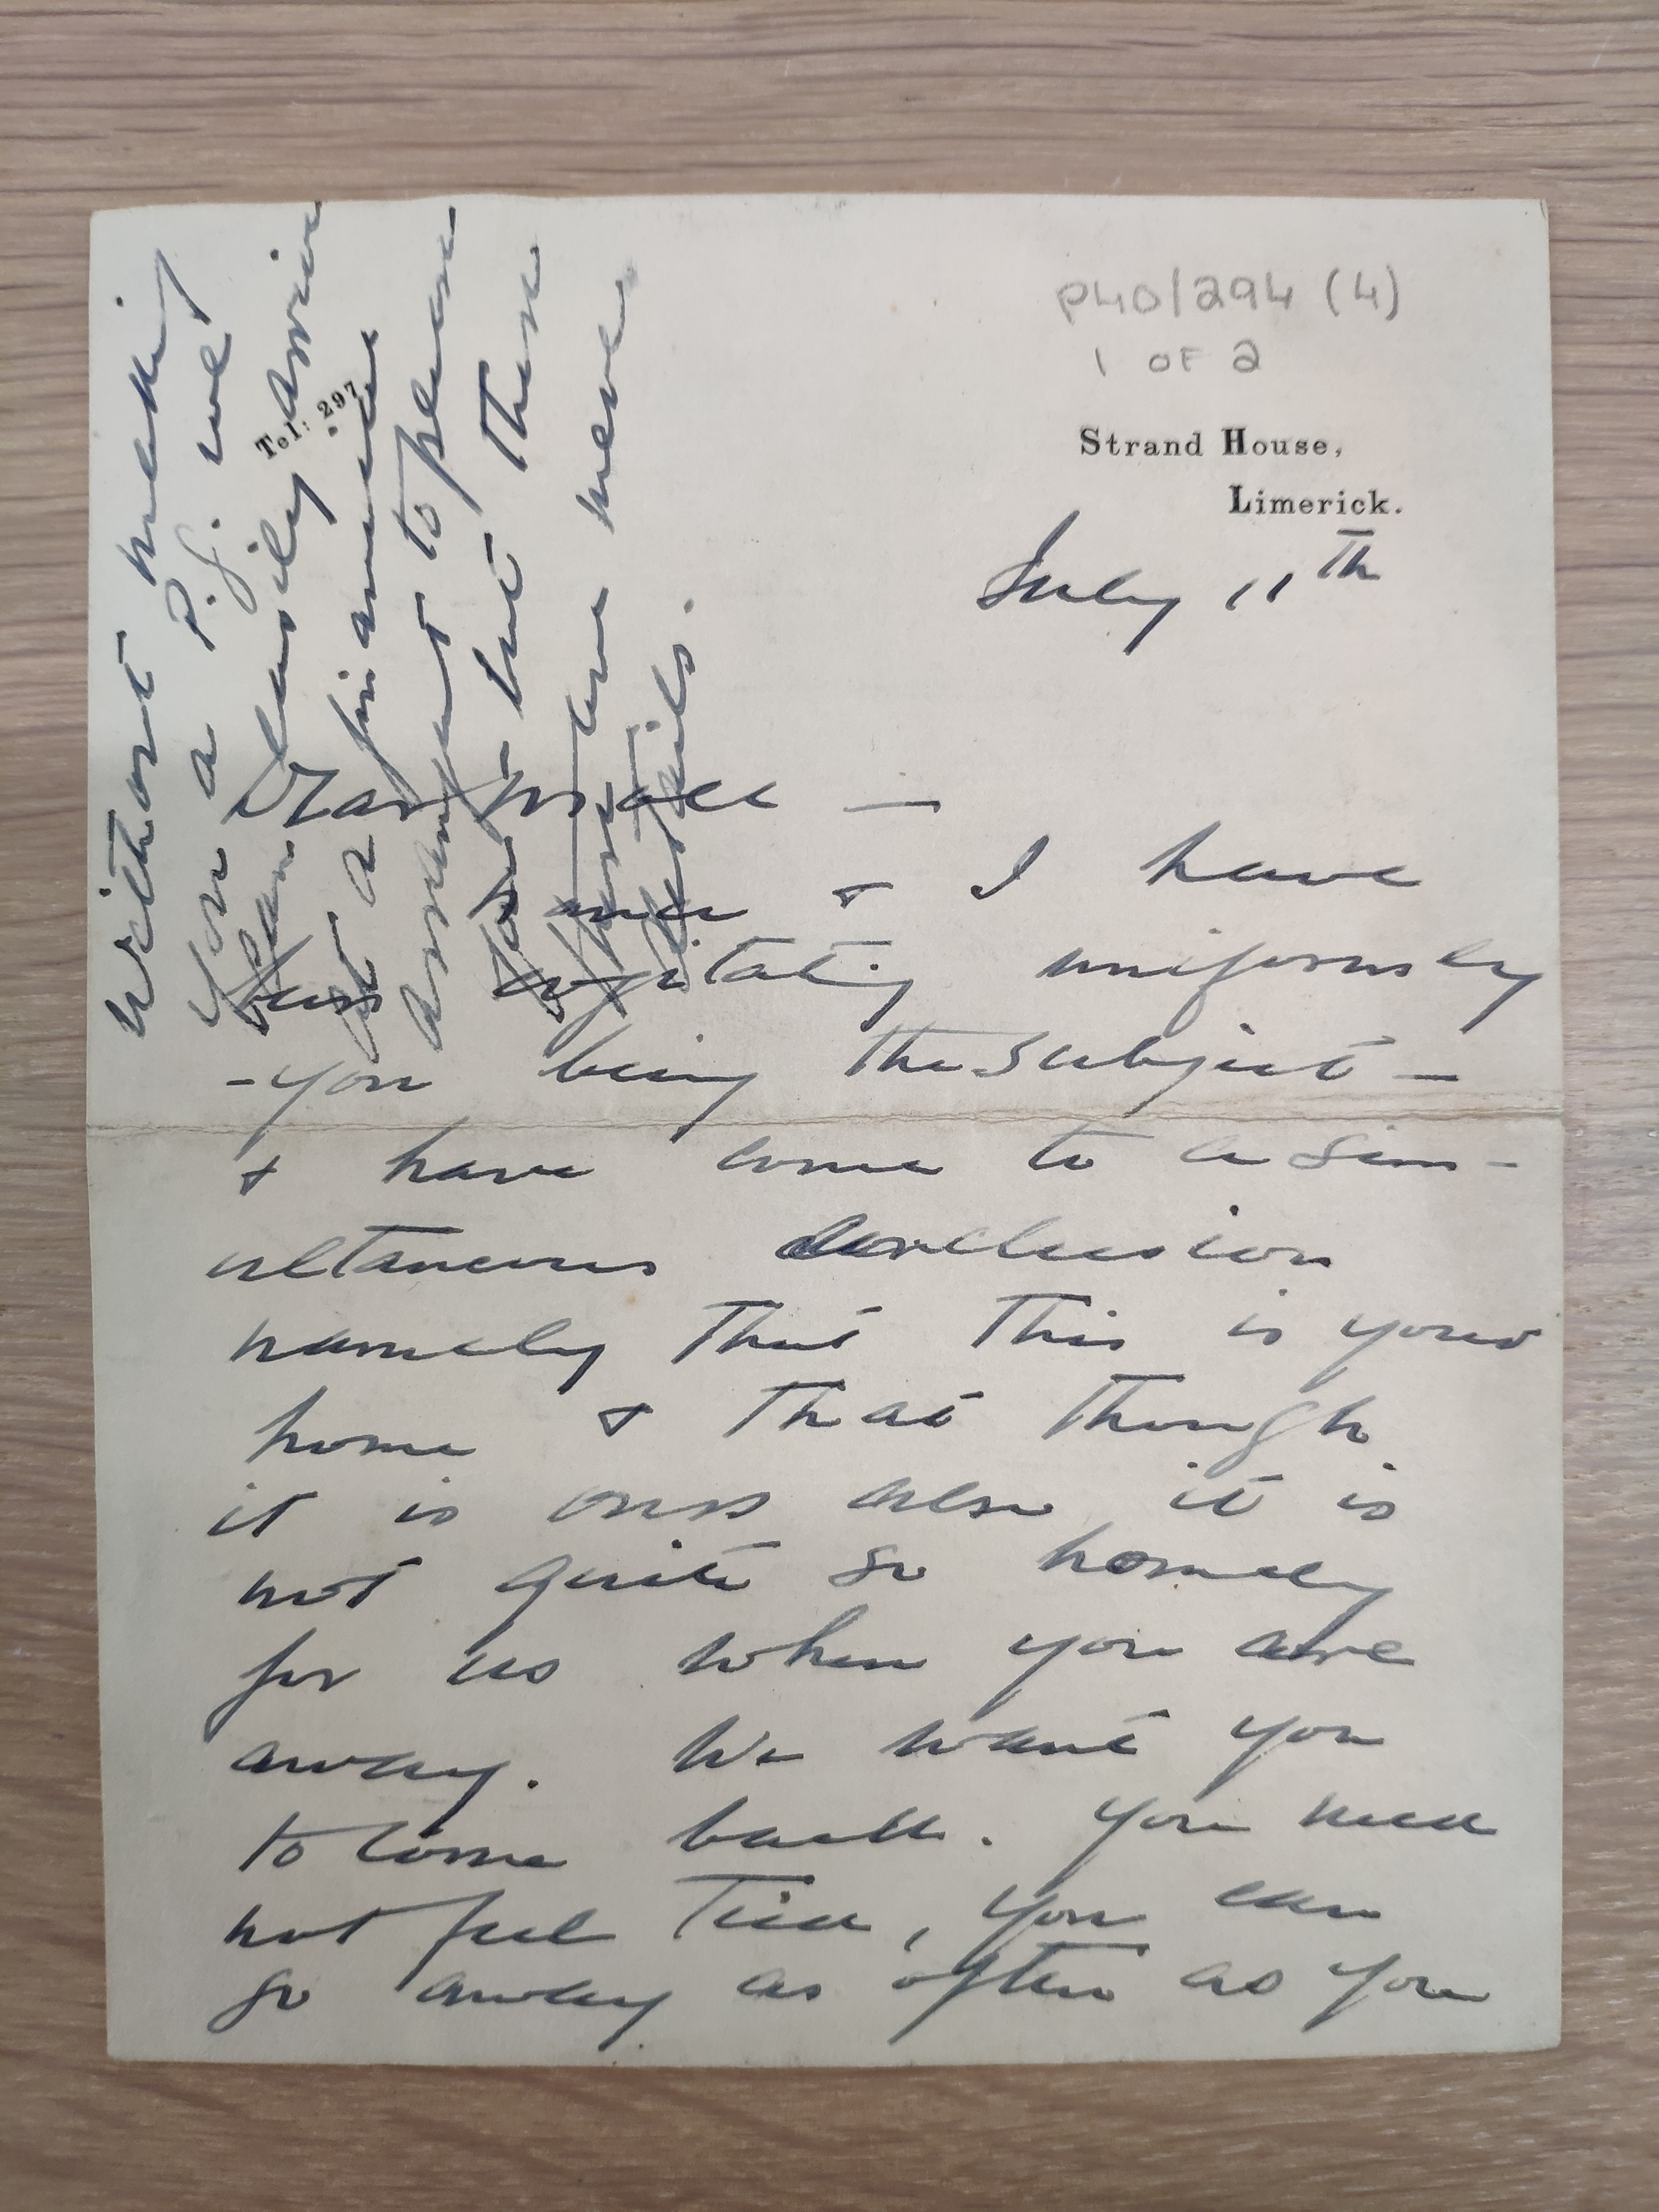 P40/294 (4)
1 OF 2
Strand House,
Limerick.
Tel: 297.
July 11th
Dear —
& I have
been cogitating uniformly
- you being the subject -
& have come to a sim-
ultaneous conclusion
namely that this is your
home & that though
it is ours also it is
not quite so homely
for us when you are
away. We want you
to come back. You need
not feel tied, you can
go away as often as you
Without making
you a P.G. we
can easily arrive
at a financial
arrangement to please
you but these
are mere
details.